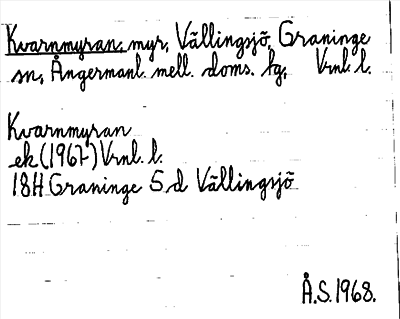 Kvarnmyran, myr, Vällingsjö, Graninge
sn, Ångermanl. mell. doms. hg, Vrnl. l.
Kvarnmyran
ek (1967) Vrnl. l.
18H Graninge S d Vällingsjö
Å.S. 1968.